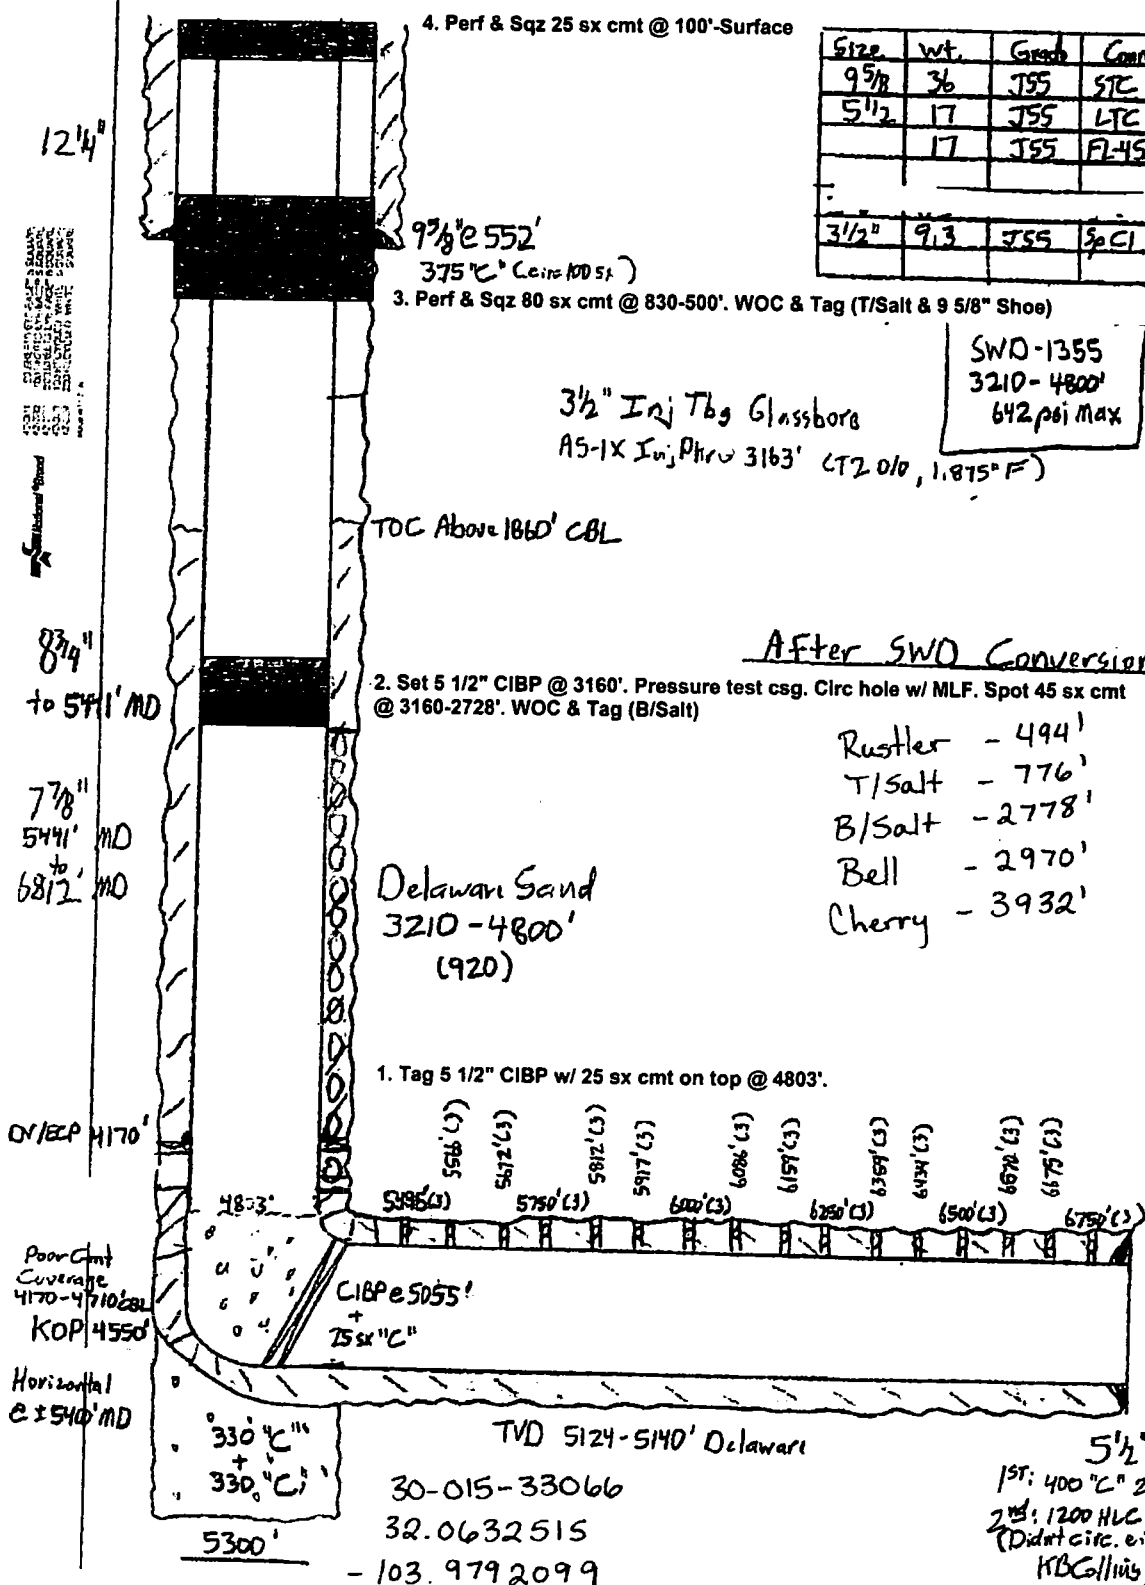 4. Perf & Sqz 25 sx cmt @ 100'-Surface
Size Wt. Grade Conn
9 5/8 36 J55 STC
5 1/2 17 J55 LTC
17 J55 FL-4S
3 1/2" 9.3 J55 Spcl
12 1/4"
9 5/8" @ 552'
375 "C" (circ 100 sx)
3. Perf & Sqz 80 sx cmt @ 830-500'. WOC & Tag (T/Salt & 9 5/8" Shoe)
SWD-1355
3210-4800'
642 psi max
3 1/2" Inj Tbg Glassbore
AS-1X Inj Pkr @ 3163' (T2 O/O, 1.875" F)
TOC Above 1860' CBL
8 3/4"
to 5441' MD
After SWD Conversion
2. Set 5 1/2" CIBP @ 3160'. Pressure test csg. Circ hole w/ MLF. Spot 45 sx cmt
@ 3160-2728'. WOC & Tag (B/Salt)
Rustler - 494'
T/Salt - 776'
B/Salt - 2778'
Bell - 2970'
Cherry - 3932'
7 7/8"
5441' MD
to
6812' MD
Delaware Sand
3210-4800'
(920)
1. Tag 5 1/2" CIBP w/ 25 sx cmt on top @ 4803'.
DV/ECP 4170'
5566'(3) 5672'(3) 5812'(3) 5917'(3) 6086'(3) 6159'(3) 6359'(3) 6434'(3) 6675'(3)
4803'
5495'(3) 5750'(3) 6000'(3) 6250'(3) 6500'(3) 6750'(3)
Poor Cmt
Coverage
4170-4710' CBL
KOP 4550'
CIBP @ 5055'
+
25 sx "C"
Horizontal
@ ± 5400' MD
330 "C"
+
330 "C"
5300'
TVD 5124-5140' Delaware
30-015-33066
32.0632515
-103.9792099
5 1/2"
1ST: 400 "C" 2
2nd: 1200 HLC
(Didnt circ. ei
KBCollins